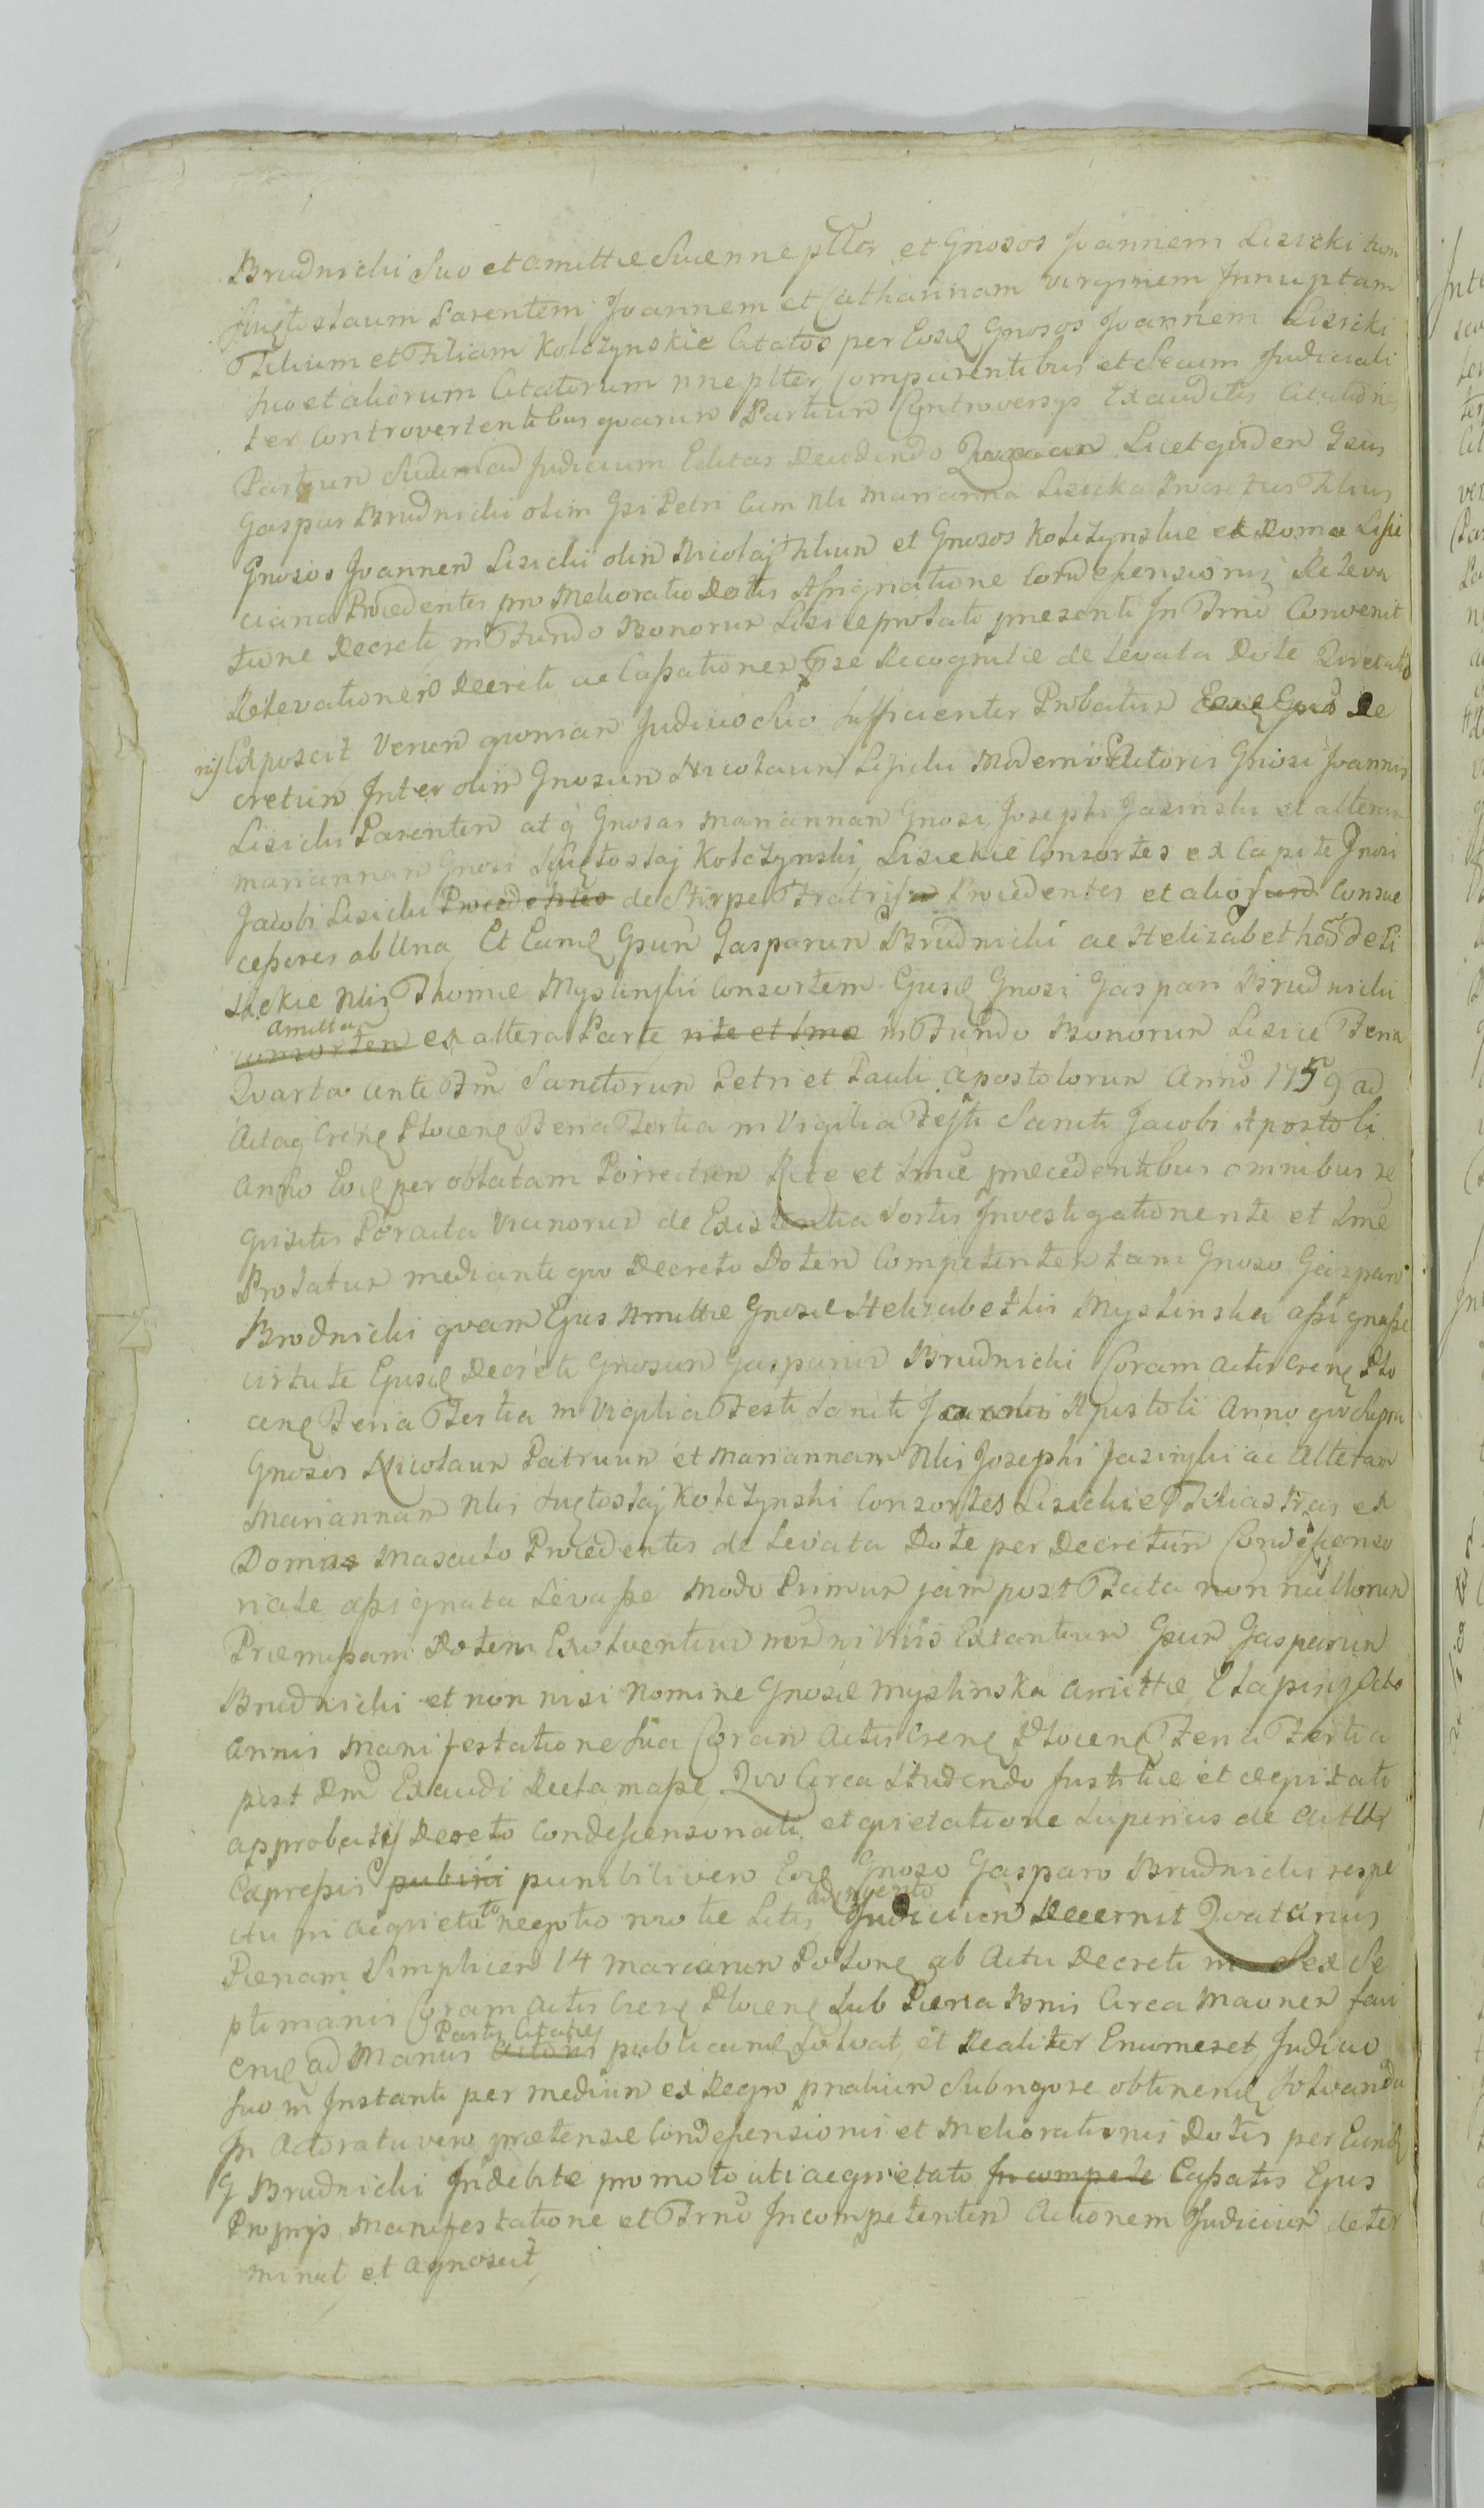 Brudnicki Suo et amittae Suae nne pltter et Gnosos Joannem Lisicki tum
Parentem Joannem et Catharinam virginem Innuptam
Filium et Filiam Kolczynskie Citatos per Eosd Gnosos Joannem Lisicki
Suo et aliorum Citatorum nne pltter Comparentibus et Secum Judiciali
ter Controvertentibus quarum Partium Controversys Exauditis Citationes
Partium ad Judicium Editas Decidendo Quoniam Licet quidem Gsus
Gaspar Brudnicki olim Gsi Petri cum Nli Marianna Lisicka Filius
Gnosos Joannem Lisicki olim Nicolaj Filium et Gnosos Kolczynskie ex Domo Lisic
ciana Procedentes pro Melioratio Dotis Assignatione Condescensionis Releva
tione Decreti in Fundo Bonorum Lisice prolati presenti In Trno Convenit
Relevationem Decreti ac Cassationem Recognitae de levata Dote Quietatio
nis Exposcit Verum quoniam Judicio Suo Sufficienter Probatur De
cretum Inter olim Gnosum Nicolaum Lisicki Moderni Actoris Gnosi Joannis
Lisicki Parentem atq Gnosas Mariannam Gnosi Josephi Jasinski et alteram
Mariannam Gnosi Kolczynski Lisickie Consortes ex Capite Gnosi
Jacobi Lisicki Procedentes de Stirpe Fratris Procedentes et alios Consuc
cessores ab Una Et Eund Gsum Gasparum Brudnicki ac Helizabetham de Li
sickie Nlis Thomae Myslinski Consortem Ejusd Gnosi Gaspari Brudnicki
amittam
consortem ex altera Parte rite et lme in Fundo Bonorum Lisice Feria
Quarta ante Fm Sanctorum Petri et Pauli Apostolorum Anno 1759 ad
Actaq Feria Tertia in Vigilia Festi Sancti Jacobi Apostoli
Anno Eod per oblatam Porrectum Rite et lme precedentibus omnibus re
qusitis Peracta Vicinorum de Existentia Sortis Investigatione rite et lme
Prolatum mediante quo Decreto Dotem Competentem tam Gnoso Gasparo
Brodnicki quam Ejus Amittae Gnosae Helizabethis Myslinska assignasse
virtute Ejusd Decreti Gnosum Gasparum Brudnicki Coram actis Plo
cen Feria Tertia in Vigilia Festi Sancti Jacobi Apostoli Anno quo Supra
Gnosos Nicolaum Patruum et Mariannam Nlis Josephi Jasinski ac Alteram
Mariannam Nlis Kolczynski Consortes Lisickie Filias ex
Domo Masculo Procedentes de Levata Dote per Decretum Condescenso
riale assignata Levasse modo Primum jam post Fata non nullorum
Praemissam Dotem Exolventium in vivis Extantium Gsum Gasparum
Brudnicki et non nisi Nomine Gnosae Myslinska amittae Elapsis Octo
Annis Manifestatione Sua Coram Actis Feria Tertia
post Dm Exaudi Reclamasse Quo Circa Studendo Justitiae et aequitati
approbatis Decreto Condescensoriali et quietatione Superius de Actu
Expressis punibili vero Eod Gnoso Gasparo Brudnicki respe
adinvento
ctu In aequietato negotio motae Litis Judicium Decernit Quatenus
Paenam Simplicem 14 Marcarum Polon ab Actu Decreti in Sex Se
ptimanis Coram Actis Sub Paena Bnis Circa Maonem fari
Partis Citatae
end ad Manus actoris publicand Solvat et Realiter Enumeret Judicio
Suo in Instanti per medium ex Regro pnalium Sub rigore obtinend Solvenda
In Actoratu vero praetensae Condescensionis et Meliorationis Dotis per Eund
G Brudnicki Indebite promoto uti aequietato Incompete Cassatis Ejus
Proprijs Manifestatione et Trno Incompetentem Actionem Judicium deter
minat et agnoscit